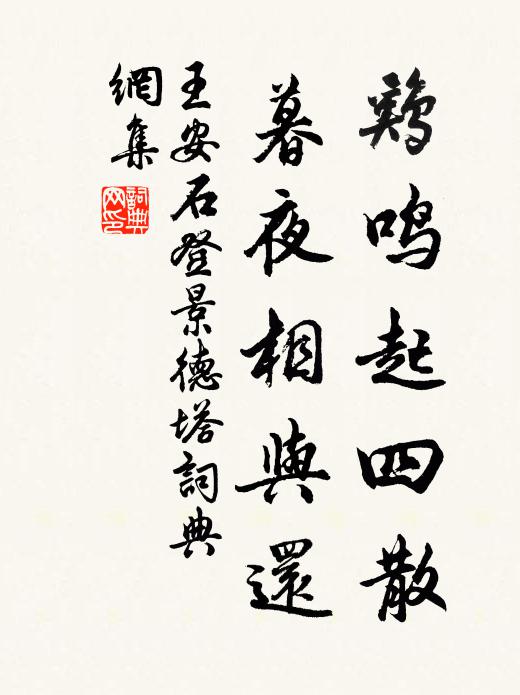 鷄鳴起四散
暮夜相與還
王安石登景德塔詞典
網集
詞典網印